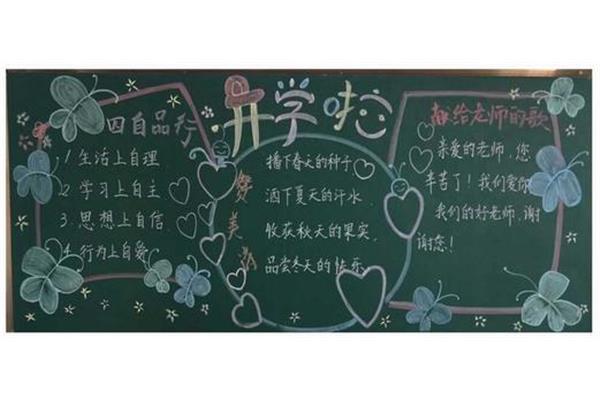 开学啦
四自品行
1 生活上自理
2 学习上自主
3 思想上自信
4 行为上自爱
播下春天的种子
洒下夏天的汗水
收获秋天的果实
品尝冬天的快乐
献给老师的歌
亲爱的老师，您
辛苦了！我们爱你
我们的好老师，谢
谢您！